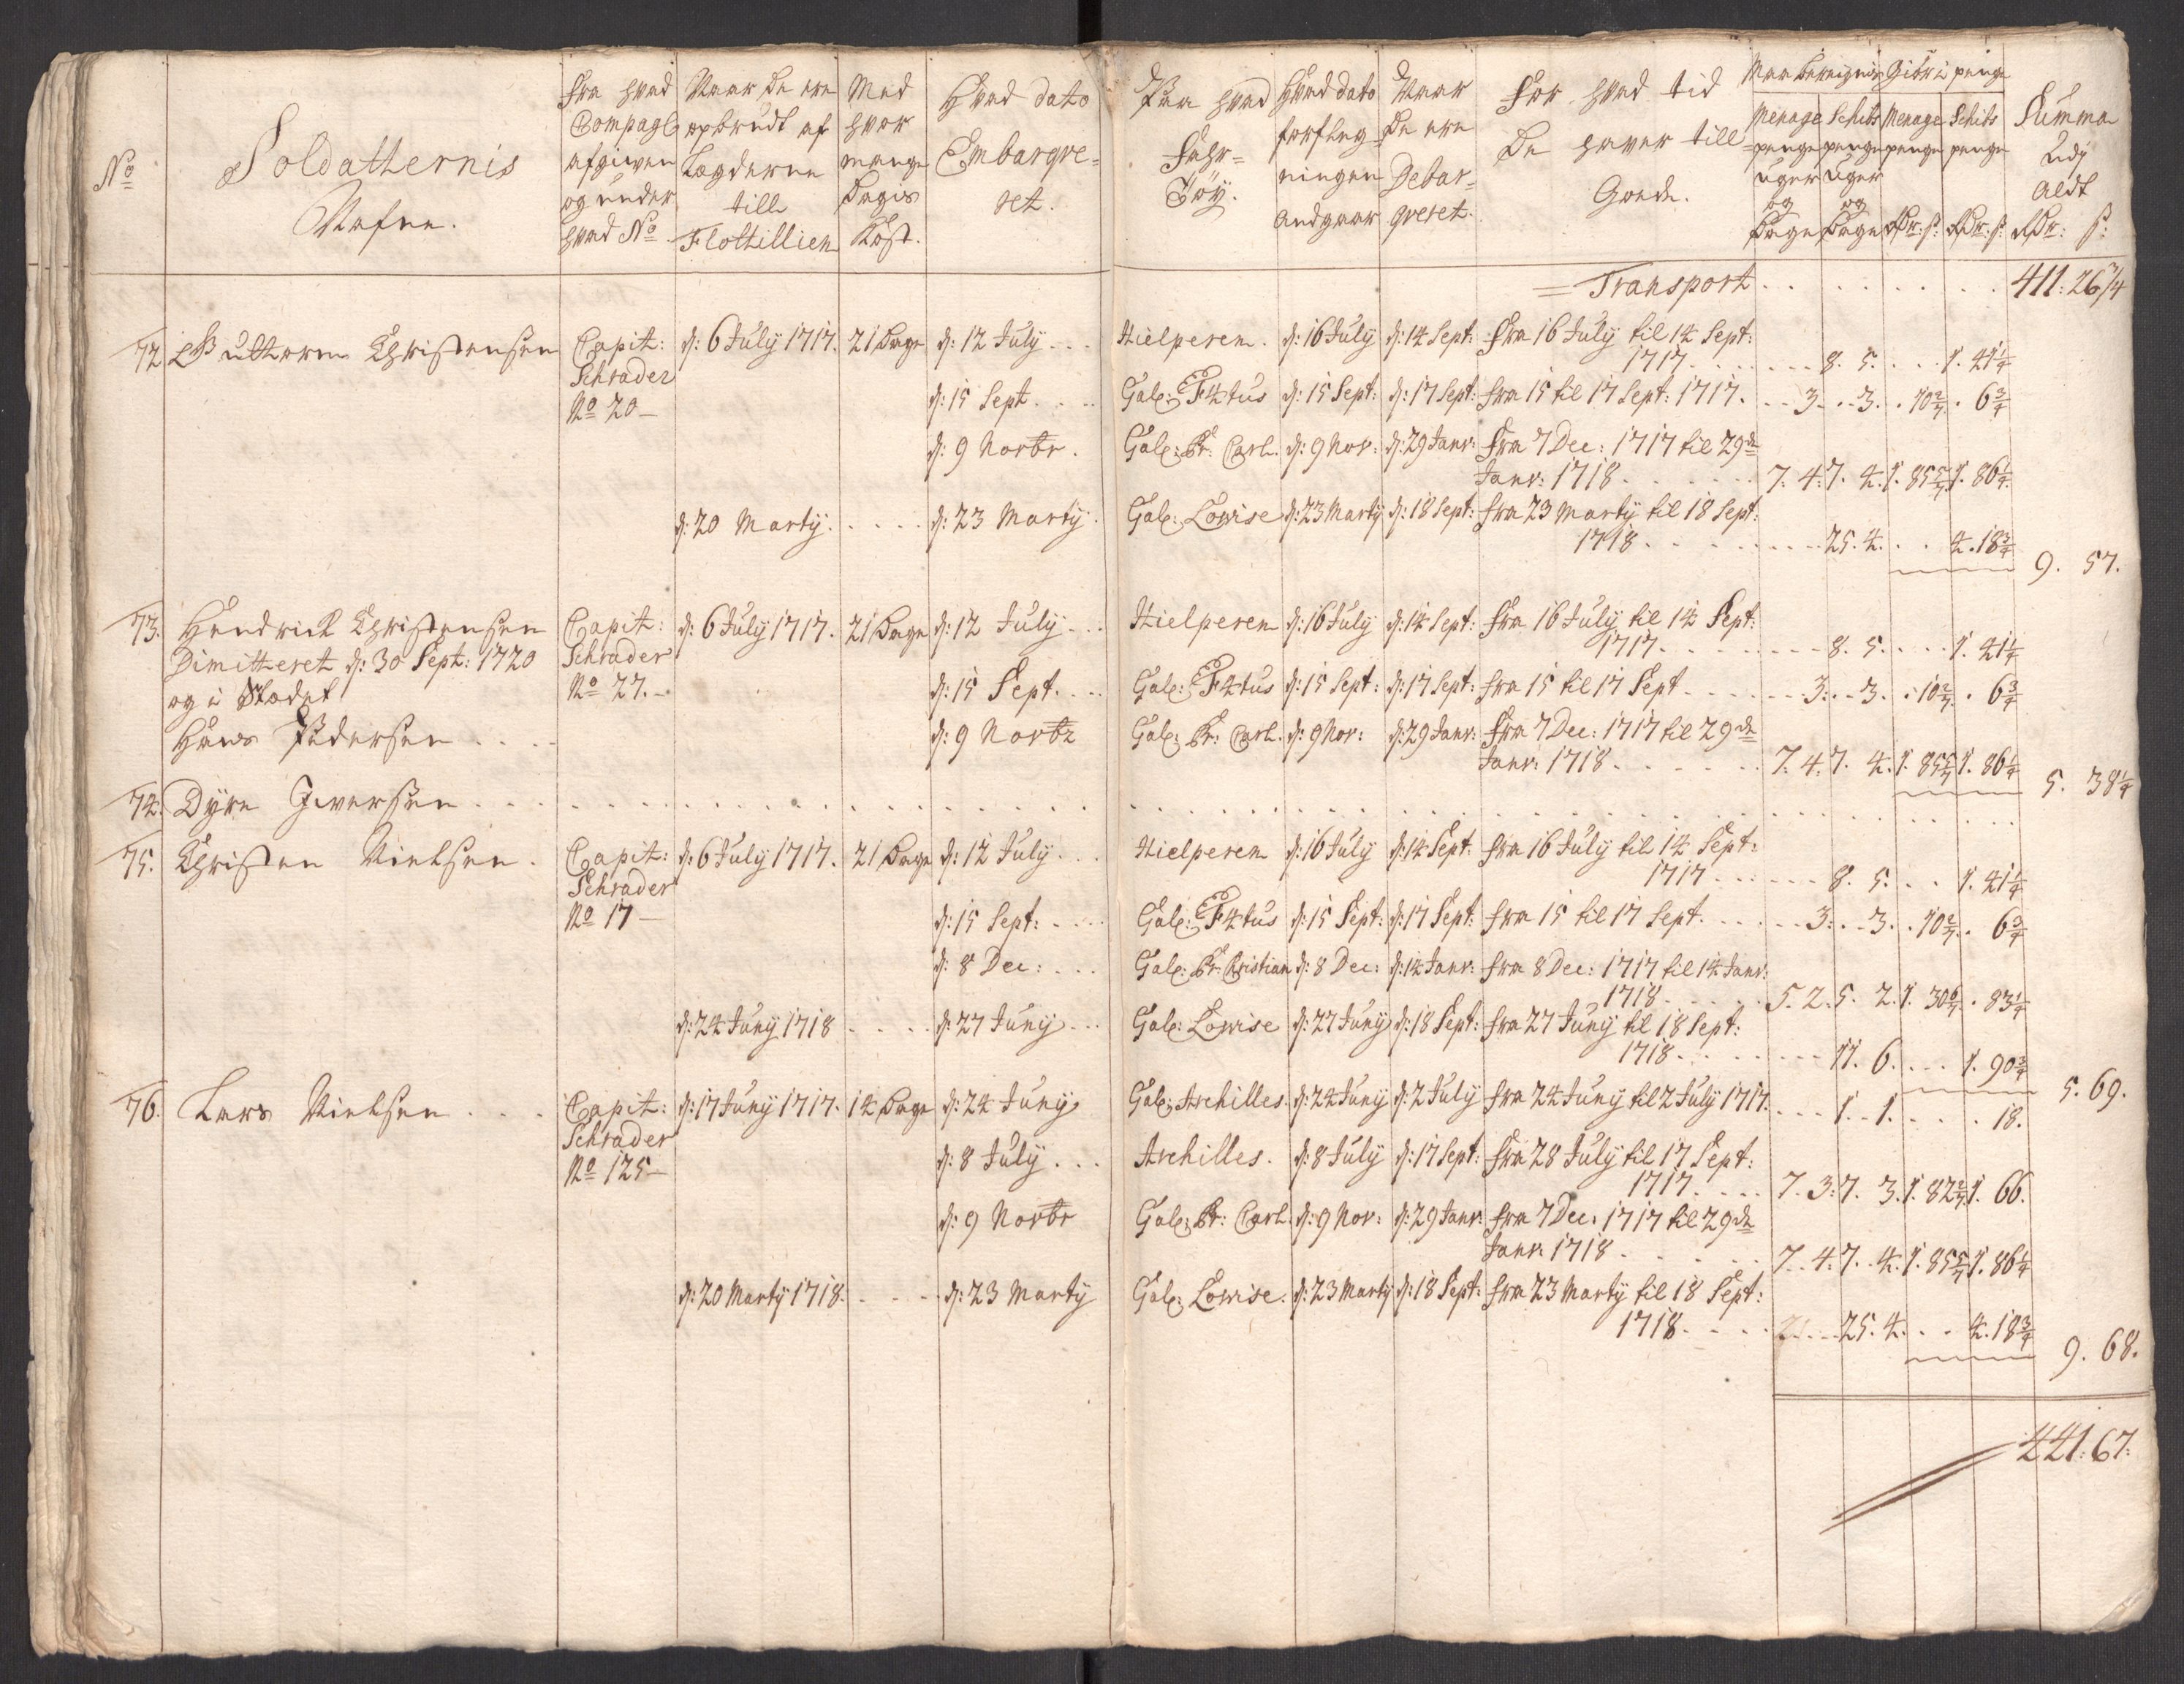 No
Soldatternis
Nafne.
Fra hvad
Compagl
afgiven
og under
hvad No
Naar De ere
opbrudt af
Lægderne
till
Flottillien
Med
hvor
mange
Dagis
Kost.
Hvad dato
Embarqve-
ret.
Paa hvad
Fahr-
Töy.
Hvad dato
forfleg-
ningen
andgaar
Naar
De ere
Debar-
qveret.
For hvad tid
De haver till
Gode.
Giör i penge
Menage penge Uger og Dage
Schibs penge Uger og Dage
Menage penge Rdr: s:
Schibs penge Rdr: s:
Summa
Udj
aldt
Rdr: s:
Transport . . . . . . . . 411: 26 3/4
72 Christensen Capit: d: 6 July 1717. 21 Dage d: 12 July . . . Hielperen. d: 16 July d: 14 Sept: Fra 16 July til 14 Sept:
Schrader 1717 . . . . . . . 8. 5. . . . 1. 41 1/4
No 20 – d: 15 Sept. . . . Gal: F4tus d: 15 Sept: d: 17 Sept: fra 15 til 17 Sept: 1717. . . 3. . . 3. . 10 2/7. . 6 3/4
d: 9 Novbr. Gal: Pr: Carl. d: 9 Nov: d: 29 Janr: Fra 7 Dec: 1717 til 29de
Janr: 1718 . . . . . . 7. 4. 7. 4. 1. 85 5/7 1. 86 1/4
d: 20 Marty. . . . . d: 23 Marty. Gal: Lovise d: 23 Marty d: 18 Sept: fra 23 Marty til 18 Sept:
1718 . . . . . . . . 25. 4. . . 4. 18 3/4
9. 57.
73. Hendrick Christensen Capit: d: 6 July 1717. 21 Dage d: 12 July . . . Hielperen d: 16 July d: 14 Sept: Fra 16 July til 14 Sept:
Dimitteret d: 30 Sept: 1720 Schrader 1717 . . . . . . . . 8. 5. . . . 1. 41 1/4
og i Stædet No 27. – d: 15 Sept. . . . Gal: F4tus d: 15 Sept: d: 17 Sept: fra 15 til 17 Sept . . . . . . 3. . . 3. . 10 2/7. . 6 3/4
Hans Pedersen . . . . d: 9 Novbr Gal: Pr: Carl. d: 9 Nov: d: 29 Janr: Fra 7 Dec: 1717 til 29de
Janr: 1718 . . . . . . 7. 4. 7. 4. 1. 85 5/7 1. 86 1/4 5. 38 1/4
74. Dyre Iversen . . . . . . . . . . . . . . . . . . . .
75. Christen Nielsen. Capit: d: 6 July 1717. 21 Dage d: 12 July . . . Hielperen d: 16 July d: 14 Sept: fra 16 July til 14 Sept:
Schrader 1717 . . . . . . 8. 5. . . . 1. 41 1/4
No 17 – d: 15 Sept: . . . . Gal: F4tus d: 15 Sept: d: 17 Sept: fra 15 til 17 Sept. . . . . . 3. . . 3. . 10 2/7. . 6 3/4
d: 8 Dec: . . . Gal: Pr: Christian d: 8 Dec: d: 14 Janr: fra 8 Dec: 1717 til 14 Janr:
1718 . . . . . 5. 2. 5. 2. 1. 30 6/7. . 83 1/4
d: 24 Juny 1718 . . . . d: 27 Juny . . . Gal: Lovise d: 27 Juny d: 18 Sept: fra 27 Juny til 18 Sept:
1718 . . . . . . . 11. 6. . . . 1. 90 3/4
5. 69.
76. Lars Nielsen . . . Capit: d: 17 Juny 1717. 14 Dage d: 24 Juny Gal: Archilles. d: 24 Juny d: 2 July fra 24 Juny til 2 July 1717. . . . 1. . 1. . . . . 18.
Schrader d: 8 July . . . Archilles. d: 8 July d: 17 Sept: fra 28 July til 17 Sept:
No 125 – 1717. . . . . 7. 3. 7. 3. 1. 82 2/7 1. 66.
d: 9 Novbr Gal: Pr: Carl. d: 9 Nov: d: 29 Janr: fra 7 Dec: 1717 til 29de
Janr: 1718 . . . . . 7. 4. 7. 4. 1. 85 5/7 1. 86 1/4
d: 20 Marty 1718. . . . . d: 23 Marty Gal: Lovise. d: 23 Marty d: 18 Sept: fra 23 Marty til 18 Sept:
1718. . . . . . . 25. 4. . . . 4. 18 3/4
9. 68.
441: 67: